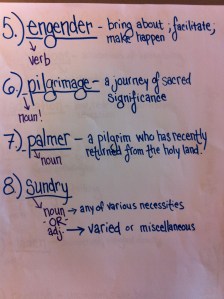 5.) engender - bring about ; facilitate;
make happen
verb
6.) pilgrimage - a journey of sacred
significance
noun!
7.) palmer - a pilgrim who has recently
returned from the holy land.
noun
8.) Sundry
noun → any of various necessities
-OR-
adj. → varied or miscellaneous